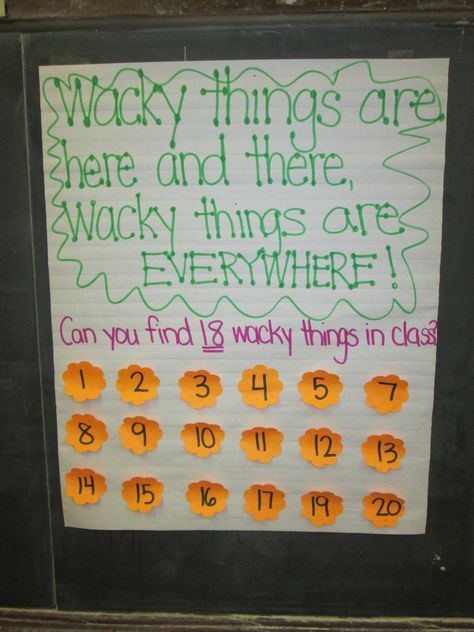 Wacky things are
here and there,
Wacky things are
EVERYWHERE!
Can you find 18 wacky things in class?
1 2 3 4 5 7
8 9 10 11 12 13
14 15 16 17 19 20